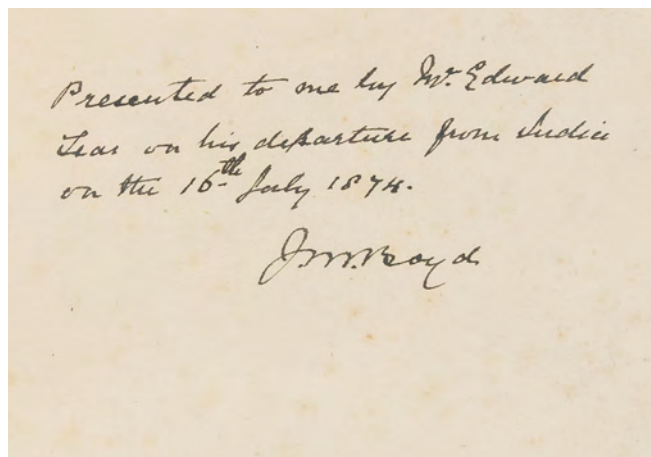 Presented to me by Mr. Edward
Lear on his departure from India
on the 16th July 1874.
J.M. Boyd